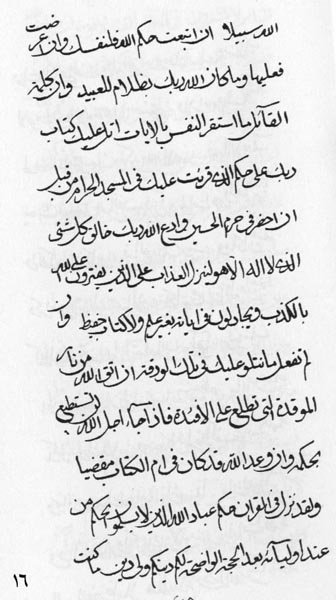 الله سبيلا و ان اتبعت حكم الله فلنفسك وان اعرضت
فعليها وما كان الله ربك بظلام للعبيد وان كلمة
القائل ما استقر النفس بالايات انا عليك كتاب
ربك على حكم الذي قريت عليك في المسجد الحرام من قبل
ان احضر في حرم الحسين وادع الله ربك خالق كل شئ
الذي لا اله الا هو لينزل العذاب على الذين يفترون على الله
بالكذب ويجادلون في اياته بغير علم ولا كتاب حفيظ وان
لم تفعل ما نتلو عليك في تلك الورقة ان اتق الله من نار
الموقدة التي تطلع على الافئدة فاذا جاء اجل الله لن تستطيع
بحكم وان وعد الله قد كان في ام الكتاب مقضيا
ولقد نزل في القران حكم عباد الله الذين لا يحكم من
عند اوليائه بعد الحجة الواضحة لكم دينكم ولي دين ما كنت
١٦